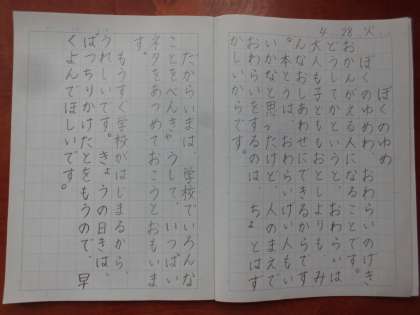 4 28 火
ぼくのゆめ
ぼくのゆめわ、おわらいのげき
おかんがえる人になることです。
どうしてかというと、おわらいは
大人も子どももおとしよりも、み
んなおしあわせにできるからです
。本とうは、おわらいげい人もい
いかなと思ったけど、人のまえで
おわらいをするのは、ちょとはず
かしいからです。
だからいまは、学校でいろんな
ことをべんきょうして、いっぱい
ネタをあつめておこうとおもいま
す。
もうすぐ学校がはじまるから、
うれしいです。きょうの日きは、
ばっちりかけたとをもうので、早
くよんでほしいです。